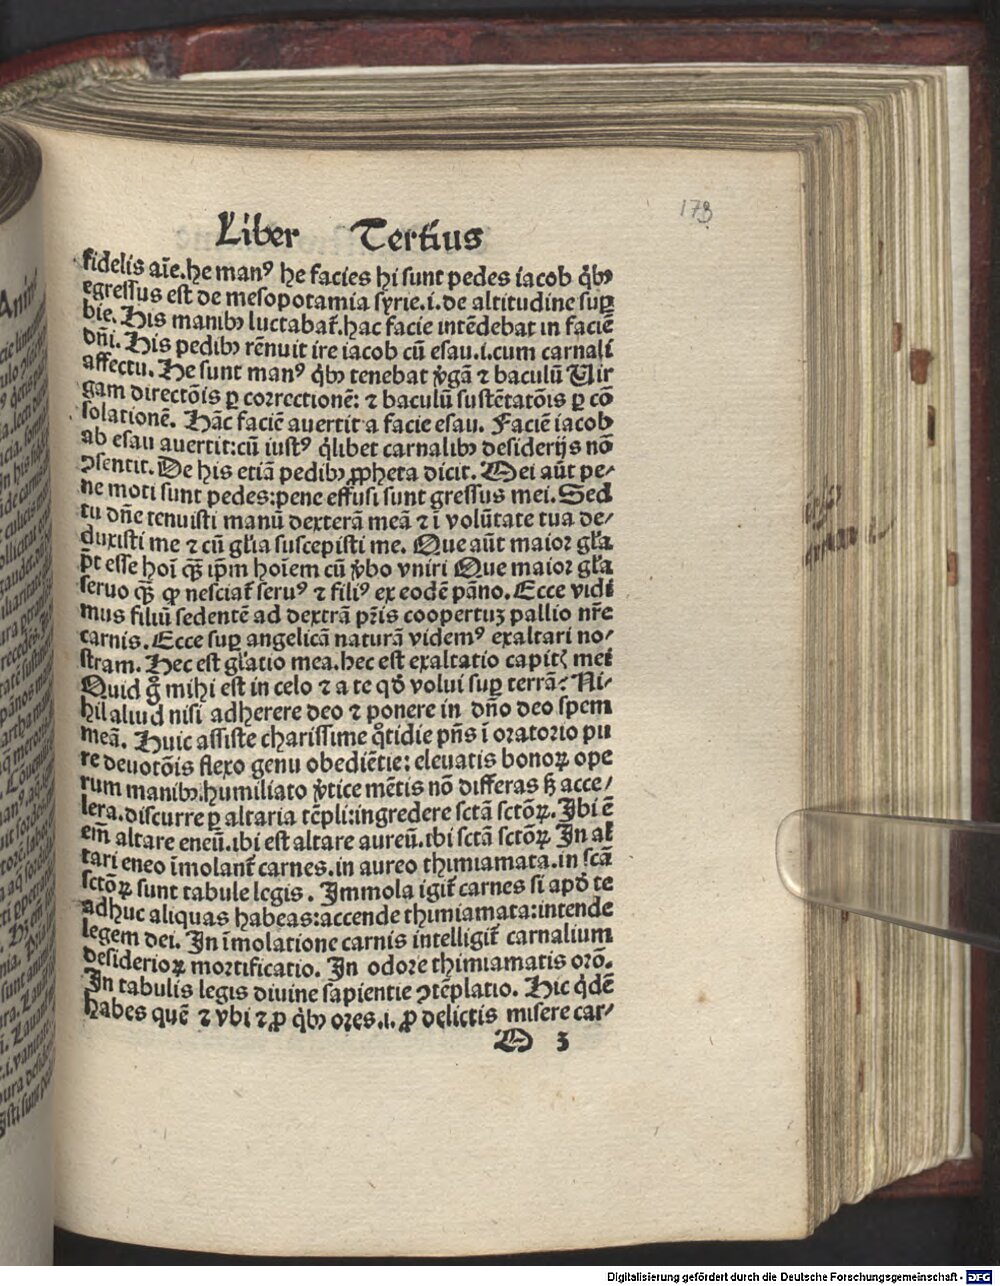 178
Liber Tertius
fidelis aīe. he manꝰ he facies hi sunt pedes iacob q̄bꝫ
egressus est de mesopotamia syrie .i. de altitudine suꝑ
bie. His manibꝫ luctabat᷑. hac facie intēdebat in faciē
dn̄i. His pedibꝫ rēnuit ire iacob cū esau .i. cum carnali
affectu. He sunt manꝰ q̄bꝫ tenebat v̓gā ⁊ baculū Uir
gam directōis ꝑ correctionē: ⁊ baculū sustētatōis ꝑ cō
solationē. Hāc faciē auertit a facie esau. Faciē iacob
ab esau auertit: cū iustꝰ q̄libet carnalibꝫ desiderijs nō
ꝯsentit. De his etiā pedibꝫ ꝓpheta dicit. Mei aūt pe⸗
ne moti sunt pedes: pene effusi sunt gressus mei. Sed
tu dn̄e tenuisti manū dexterā meā ⁊ ī volūtate tua de⸗
duxisti me ⁊ cū gl̄ia suscepisti me. Que aūt maior gl̄a
p̄t esse hoī qꝫ̄ ip̄m hoīem cū v̓bo vniri Que maior gl̄a
seruo qꝫ̄ ꝙ nesciat᷑ seruꝰ ⁊ filiꝰ ex eodē pāno. Ecce vidi
mus filiū sedentē ad dextrā pr̄is coopertuꝫ pallio nr̄e
carnis. Ecce suꝑ angelicā naturā videmꝰ exaltari no⸗
stram. Hec est gl̄atio mea. hec est exaltatio capitꝭ mei
Quid g̊ mihi est in celo ⁊ a te qd̄ volui suꝑ terrā? Ni⸗
hil aliud nisi adherere deo ⁊ ponere in dn̄o deo spem
meā. Huic assiste charissime q̊tidie pn̄s ī oratorio pu
re deuotōis flexo genu obediētie: eleuatis bonoꝝ ope
rum manibꝫ: humiliato v̓tice mētis nō differas sꝫ acce⸗
lera. discurre ꝑ altaria tēpli: ingredere sctā sctōꝝ. Ibi ē
em̄ altare eneū. ibi est altare aureū. ibi sctā sctōꝝ. In al
tari eneo īmolant᷑ carnes. in aureo thimiamata. in scā
sctōꝝ sunt tabule legis. Immola igit᷑ carnes si apd̄ te
adhuc aliquas habeas: accende thimiamata: intende
legem dei. In īmolatione carnis intelligit᷑ carnalium
desiderioꝝ mortificatio. In odore thimiamatis orō.
In tabulis legis diuine sapientie ꝯtēplatio. Hic q̄dē
habes quē ⁊ vbi ⁊ ꝓ q̄bꝫ ores .i. ꝓ delictis misere car⸗
D 3
Digitalisierung gefördert durch die Deutsche Forschungsgemeinschaft - DFG